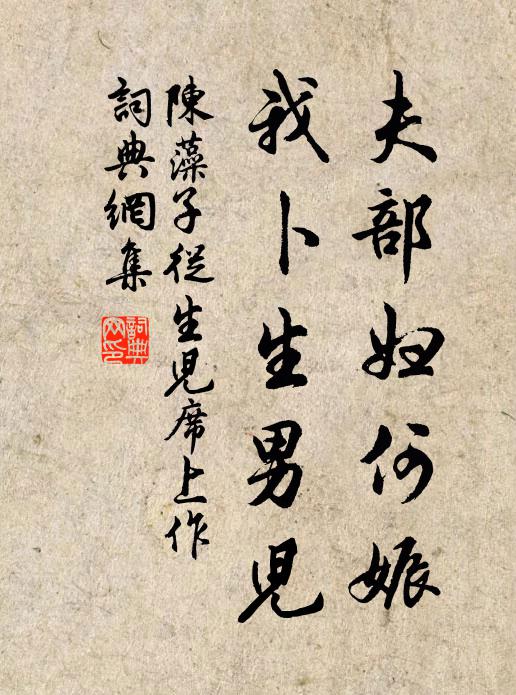 夫部妇何娠
我卜生男児
陳藻子從生児席上作
詞典網集
詞典
网印